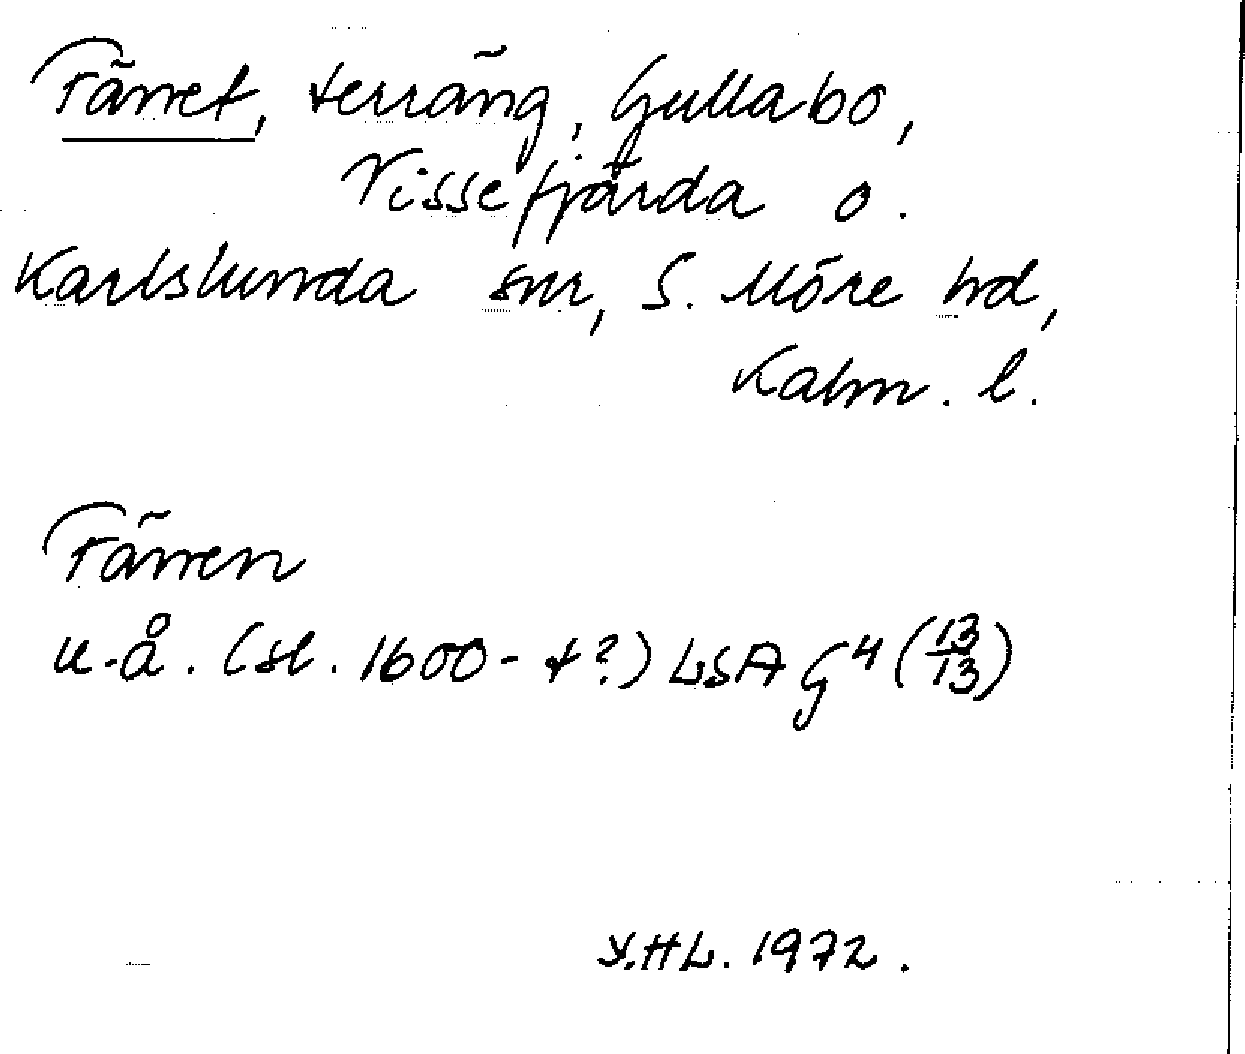 Färret, terräng, Gullabo,
Vissefjärda o.
Karlslunda snr, S. Möre hd,
Kalm. l.
Färren
u-å. (sl. 1600-t?) LSA G4 (13/13)
Y.HL. 1972.